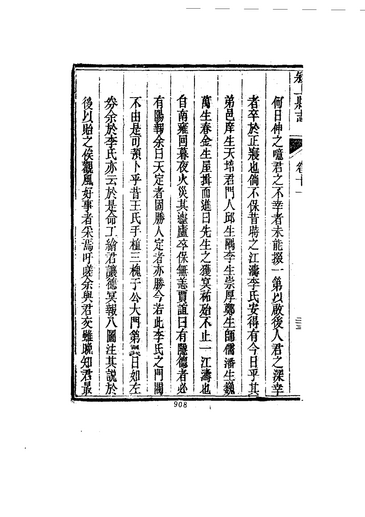 卷十一
何日伸之噫君之不幸者未能掇一第以啟後人君之深幸
者卒於正寢也倘不保昔時之江濤李氏安得有今日乎其
弟邑庠生天培君門人邱生 李生崇厚鄭生師儒潘生巍
萬生春金生屋揖而進曰先生之獲冥祐殆不止一江濤也
自南雍回暮夜火災其廬廬卒保無恙賈誼曰有隱德者必
有陽報余曰天定者固勝人定者亦勝今若此李氏之門閥
不由是可預卜乎昔王氏手植三槐于公大門第 日如左
券余於李氏亦云於是命工繪君讓德冥報八圖注其說於
後以貽之俟觀風好事者采焉吁嗟余與君交雖晚知君最
908